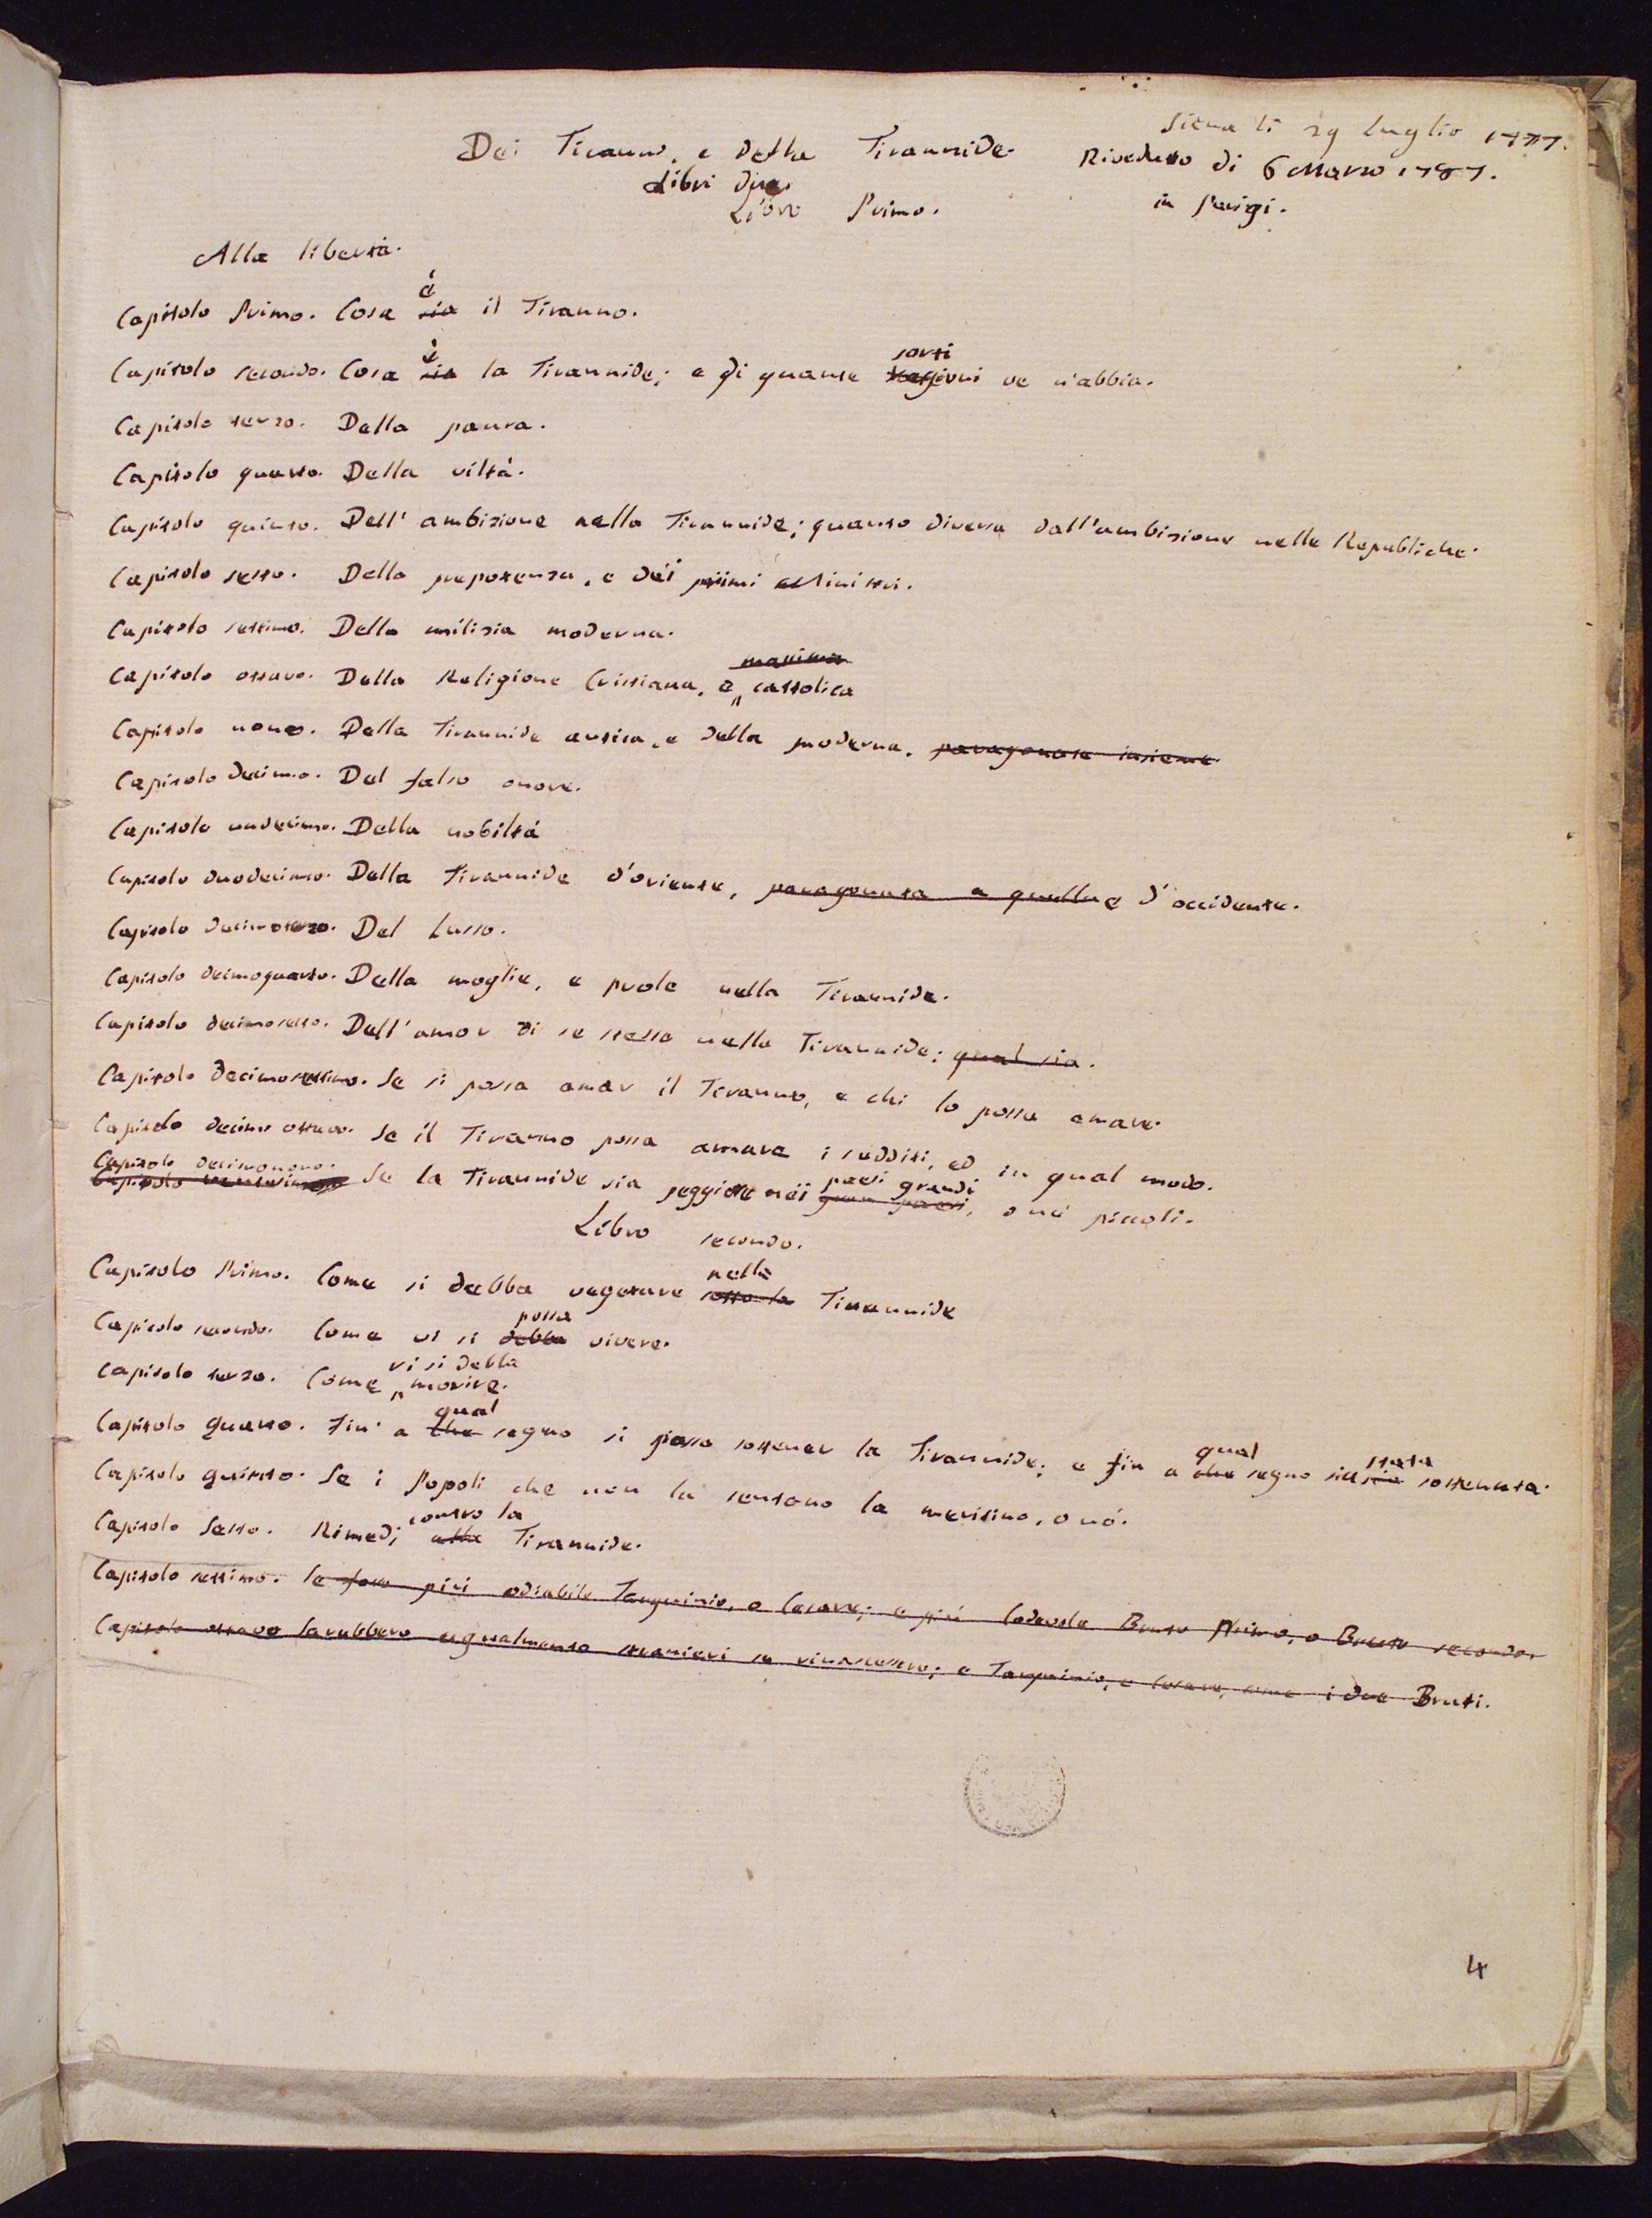 Siena li 29 Luglio 1777.
Dei Tiranni, e della Tirannide.
Riveduto di 6 Marzo 1787.
Libri due.
in Parigi.
Libro Primo.
Alla libertà.
è
Capitolo Primo. Cosa sia il Tiranno.
è sorti
Capitolo secondo. Cosa sia la Tirannide; e di quante ragioni ve n'abbia.
Capitolo terzo. Della paura.
Capitolo quarto. Della viltà.
Capitolo quinto. Dell'ambizione nella Tirannide; quanto diversa dall'ambizione nelle Republiche.
Capitolo sesto. Della prepotenza, e dei primi Ministri.
Capitolo settimo. Della milizia moderna.
massime
Capitolo ottavo. Della Religione Cristiana, e cattolica
Capitolo nono. Della Tirannide antica, e della moderna. paragonate insieme
Capitolo decimo. Del falso onore.
Capitolo undecimo. Della nobiltà
Capitolo duodecimo. Della Tirannide d'oriente, paragonata a quella e d'occidente.
Capitolo decimoterzo. Del Lusso.
Capitolo decimoquarto. Della moglie, e prole nella Tirannide.
Capitolo decimosesto. Dell'amor di se stesso nella Tirannide; qual sia.
Capitolo decimosettimo. Se si possa amar il Tiranno, e chi lo possa amare.
Capitolo decimo ottavo. Se il Tiranno possa amare i sudditi, ed in qual modo.
Capitolo decimonono. paesi grandi
Capitolo Se la Tirannide sia peggiore nei gran paesi, o nei piccoli.
Libro secondo.
nella
Capitolo Primo. Come si debba vegetare sotto la Tirannide
possa
Capitolo secondo. Come vi si debba vivere.
vi si debba
Capitolo terzo. Come morire.
qual qual stata
Capitolo Quarto. Fin' a che segno si possa sostener la Tirannide; e fin a che segno sia sostenuta.
Capitolo quinto. Se i Popoli che non la sentono la meritino, o nò.
contro la
Capitolo Sesto. Rimedj alla Tirannide.
Capitolo settimo. Se fosse più odiabile Tarquinio, o Cesare; e più lodevole Bruto Primo, o Bruto secondo.
Capitolo ottavo Sarebbero egualmente stranieri se rinascessero; e Tarquinio, e Cesare, come i due Bruti.
4